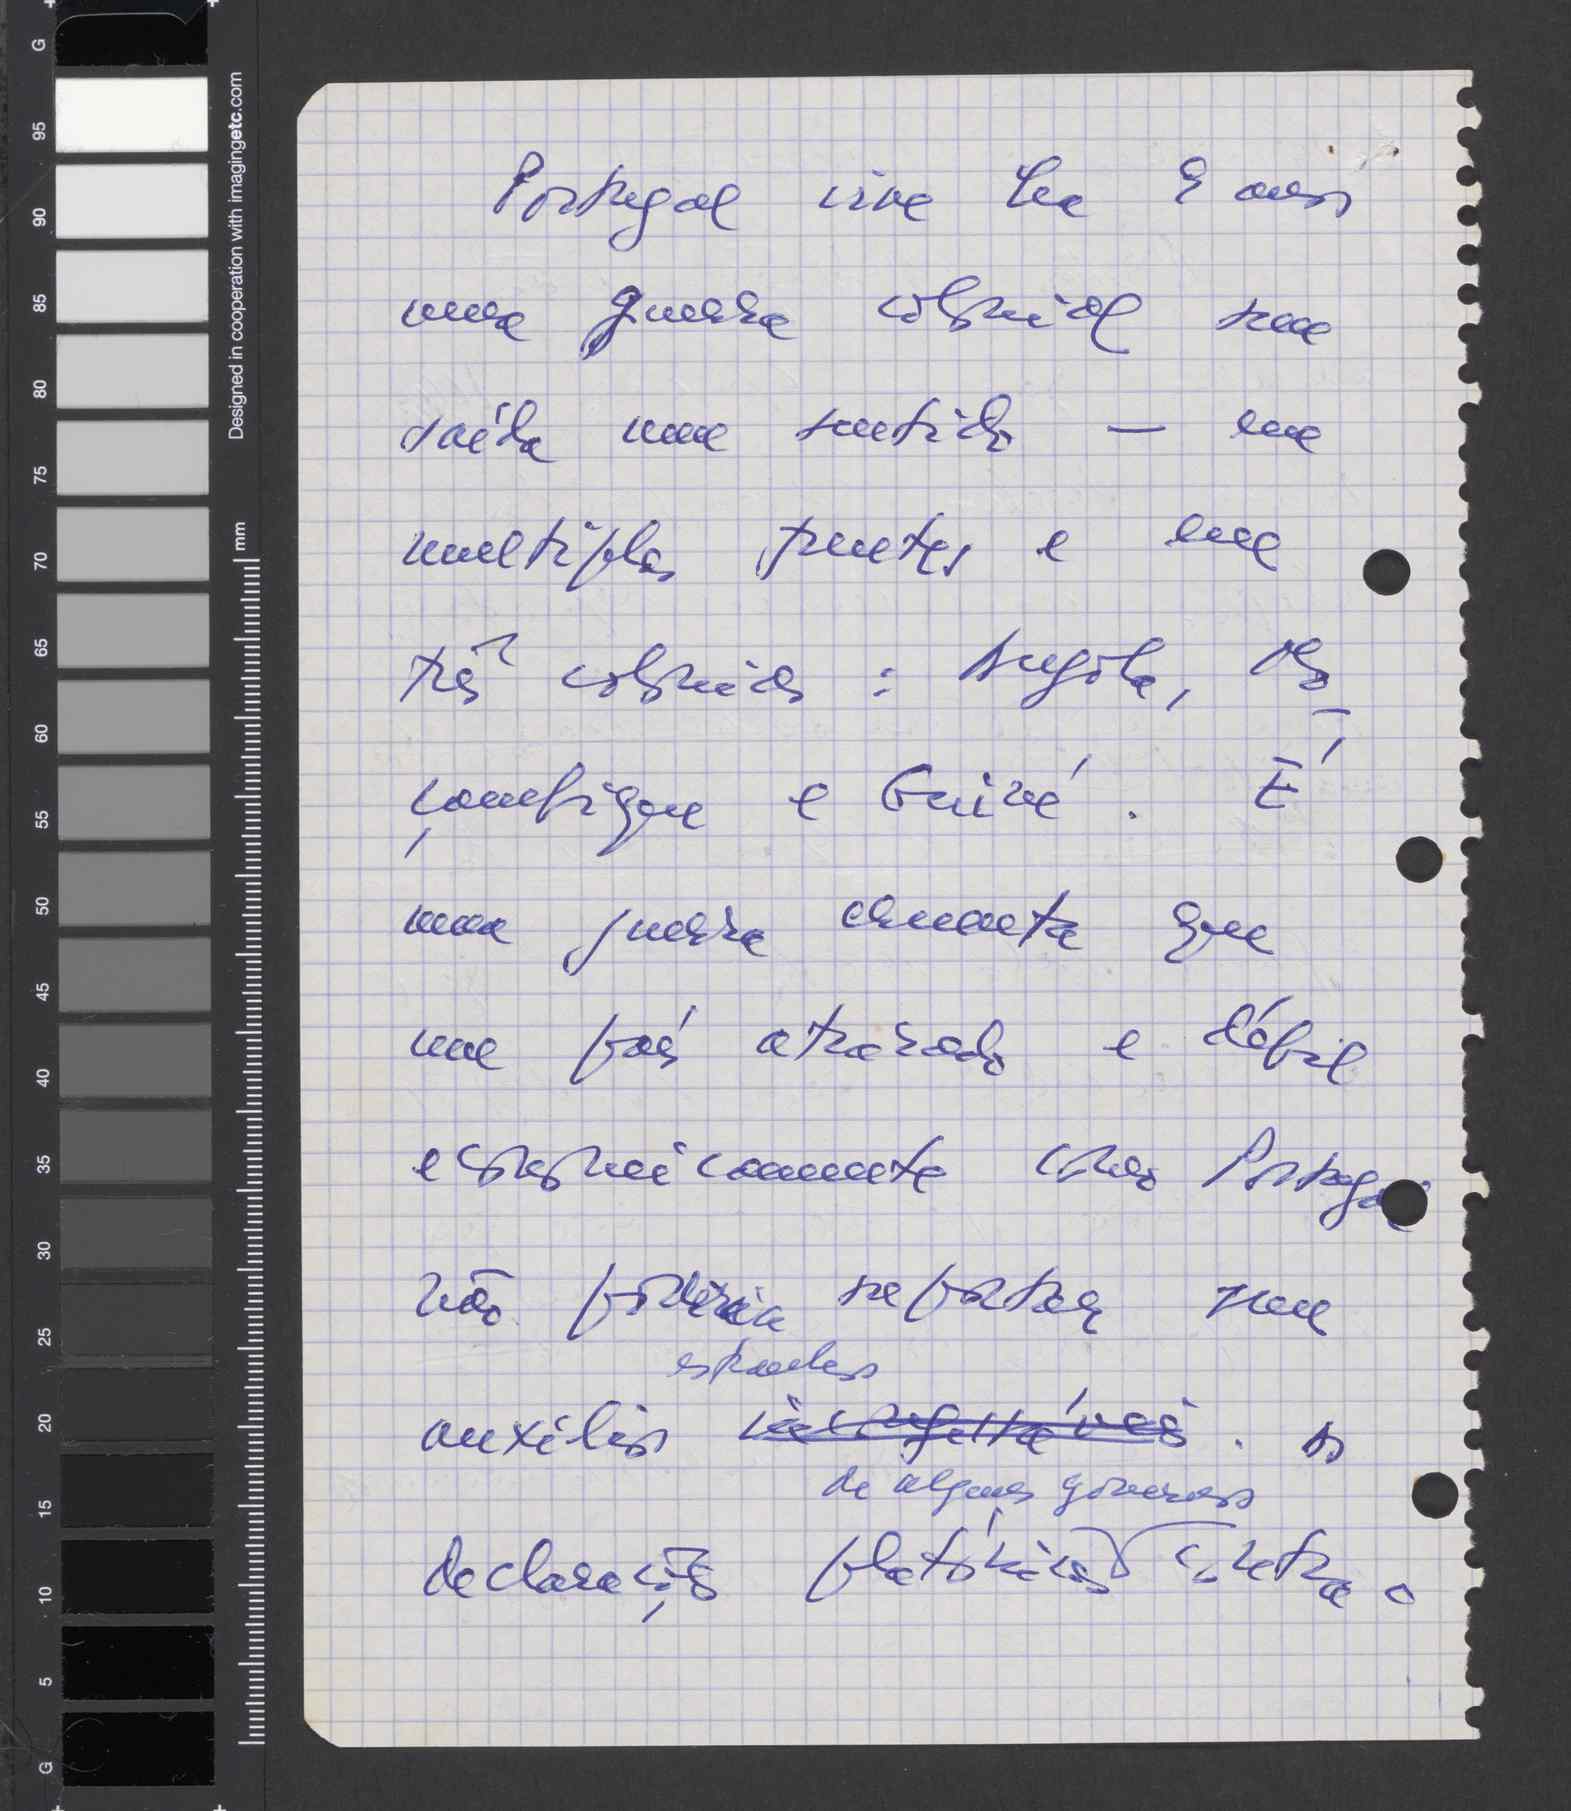 G 95 90 85 80 75 70 65 60 55 50 45 40 35 30 25 20 15 10 5 G
Designed in cooperation with imagingetc.com
mm
Portugal vive há 9 anos
uma guerra colonial sem
saída nem sentido — em
multiplas frentes e em
três colónias : Angola, Mo-
çambique e Guiné. É
uma guerra cruenta que
um país atrazado e débil
economicamente como Portugal
não poderia suportar sem
estranhos
auxílios . As
de alguns governos
declarações platónicas contra o